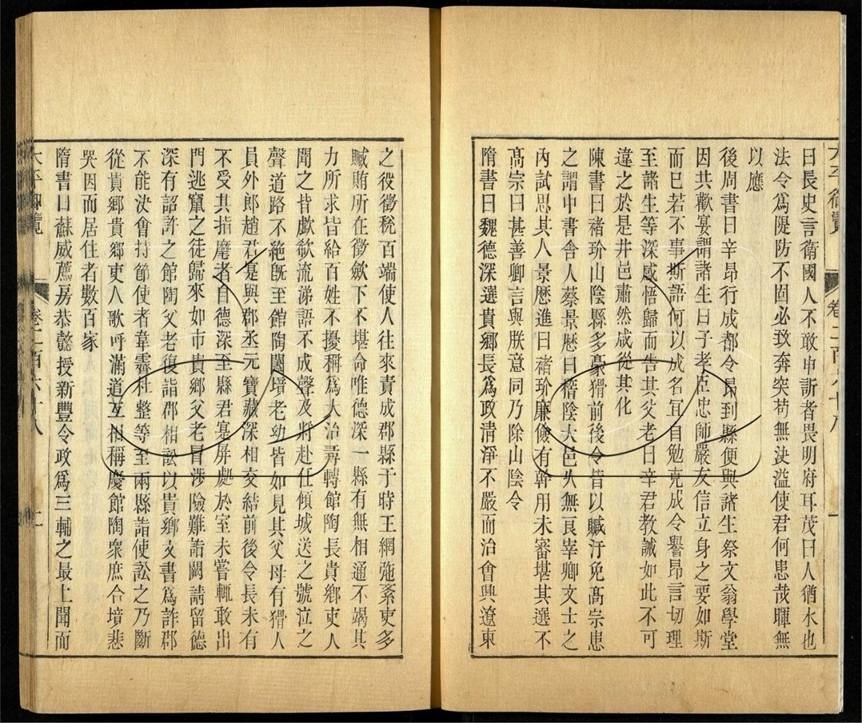 曰長史言衛國人不敢申訴者畏明府耳茂曰人猶水也
法令為隄防不固必致奔突苟無決溢使君何患哉暉無
以應
後周書曰辛昂行成都令昂到縣便與諸生祭文翁學堂
因共歡宴謂諸生曰子孝臣忠師嚴友信立身之要如斯
而已若不事斯語何以成名宜自勉克成令譽昂言切理
至諸生等深感悟歸而告其父老曰辛君教誡如此不可
違之於是井邑肅然咸從其化
陳書曰褚玠山陰縣多豪猾前後令皆以贓汙免高宗患
之謂中書舍人蔡景歷曰稽陰大邑久無良宰卿文士之
內試思其人景歷進曰褚玠廉儉有幹用未審堪其選不
高宗曰甚善卿言與朕意同乃除山陰令
隋書曰魏德深選貴鄉長為政清淨不嚴而治會興遼東
之役徵稅百端使人往來責成郡縣于時王綱弛紊吏多
贓賄所在徵歛下不堪命唯德深一縣有無相通不竭其
力所求皆給百姓不擾稱為大治尋轉館陶長貴鄉吏人
聞之皆歔欷流涕語不成聲及將赴任傾城送之號泣之
聲道路不絶旣至館陶闔境老幼皆如見其父母有猾人
員外郎趙君寔與郡丞元寶藏深相交結前後令長未有
不受其指麾者自德深至縣君寔屏處於室未嘗輒敢出
門逃竄之徒歸來如市貴鄉父老冒涉險難詣闕請留德
深有詔許之館陶父老復詣郡相訟以貴鄉文書為詐郡
不能決會持節使者韋霽杜整等至兩縣詣使訟之乃斷
從貴鄉貴鄉吏人歌呼滿道互相稱慶館陶衆庶合境悲
哭因而居住者數百家
隋書曰蘇威薦房恭懿授新豐令政為三輔之最上聞而
太平御覽
卷二百六十八